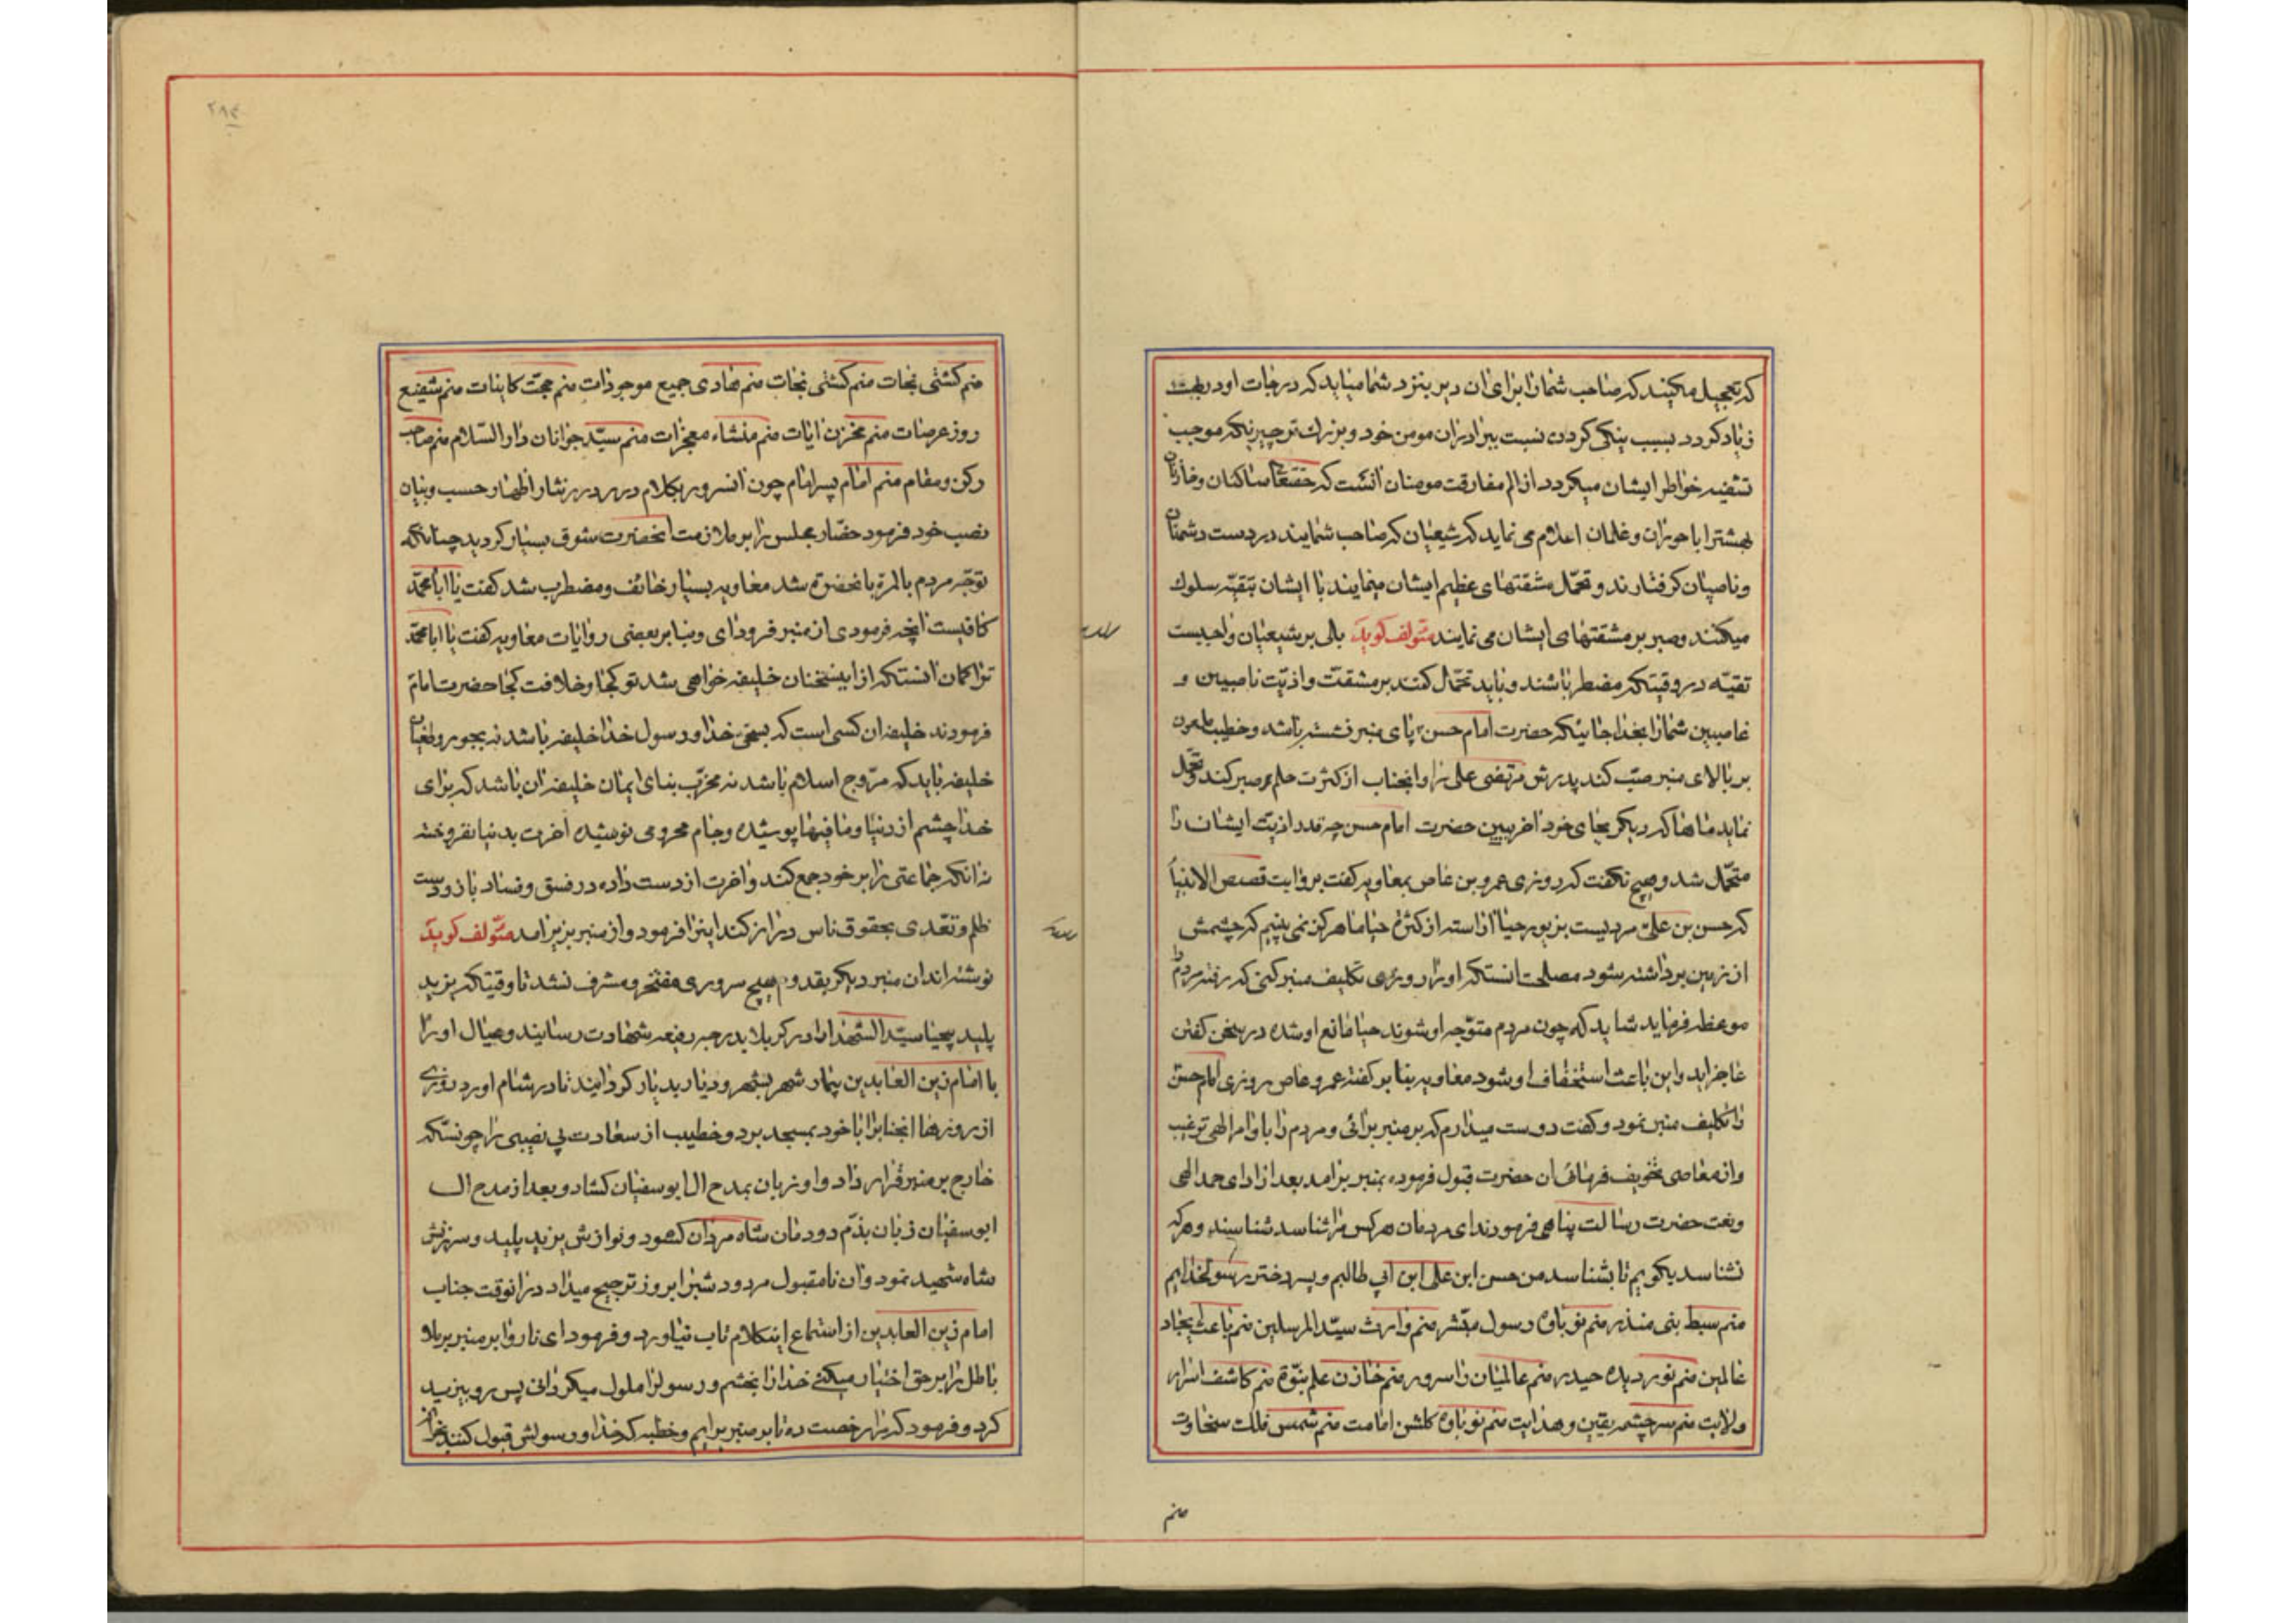 که تعجیل میکنید که صاحب شما را برای آن دیر بنزد شما میاید که درجات او در بهشت
زیاد کردد بسبب نیکی کردن نسبت ببرادران مومن خود و بزرك تر چیزیکه موجب
تشفیه خواطر ایشان میکردد از الم مفارقت مومنان آنست که حقتعا ساکنان و خازنان
بهشترا با حوران و غلمان اعلام می نماید که شیعیان که صاحب شمایند در دست دشمنان
و ناصبیان کرفتارند و تحمّل مشقتهای عظیم ایشان مینمایند با ایشان بتقیّه سلوك
میکنند و صبر بر مشقتهای ایشان می نمایند مؤلف کوید بلی بر شیعیان واجبست
تقیّه در وقیتکه مضطر باشند و باید تحمّل کنند بر مشقت و اذیّت ناصبیین و
غاصبین شما را بخدا جائیکه حضرت امام حسن پای منبر نشسته باشد و خطیب ملعون
بر بالای منبر سبّ کند پدرش مرتضی علی را و انجناب از کثرت حلم صبر کند و تحمّل
نماید ماها که دیکر بجای خود اخر ببین حضرت امام حسن چه قدر اذیّت ایشان را
متحمّل شد و هیچ نکفت که روزی عمرو بن عاص بمعاویه کفت بروایت قصص الانبیاء
که حسن بن علی مردیست بزیور حیا آراسته از کثرة حیا ما هرکز نمی بینیم که چشمش
از زمین برداشته شود مصلحت انستکه او را روزی تکلیف منبر کنی که رفته مردم را
موعظه فرماید شاید که چون مردم متوّجه او شوند حیا مانع او شده در سخن کفتن
عاجز اید و این باعث استخفاف او شود معاویه بنا بر کفته عمرو عاص روزی امام حسن
را تکلیف منبر نمود و کفت دوست میدارم که بر منبر برائی و مردم را باوامر الهی ترغیب
و از معاصی تخویف فرمائی ان حضرت قبول فرموده بمنبر برامد بعد از ادای حمد الهی
و نعت حضرت رسالت پناهی فرمودند ای مردمان هر کس مرا شناسد شناسند و هر که
نشناسد بکویم تا بشناسد من حسن ابن علی ابن ابی طالبم و پسر دختر رسولخدایم
منم سبط نبی منذر منم نوباوه رسول مبشّر منم وارث سیّد المرسلین منم باعث ایجاد
عالمین منم نور دیده حیدر منم عالمیان را سرور منم خازن علم نبوّة منم کاشف اسرار
ولایت منم سرچشمه یقین و هدایت منم نوباوه کلشن امامت منم شمس فلك سخاوت
منم
۲۸۴
منم کشتی نجات منم کشتی نجات منم هادی جمیع موجودات منم حجّت کاینات منم شفیع
روز عرصات منم مخزن ایات منم منشاء معجزات منم سیّد جوانان دار السّلام منم صاحب
رکن و مقام منم امام پسر امام چون انسرور بکلام درر درر نثار اظهار حسب و بیان
نصب خود فرمود حضّار مجلس را بر ملازمت انحضرت شوق بسیار کردید چنانکه
توجّه مردم بالمرة بانحضرة شد معاویه بسیار خائف و مضطرب شد کفت یا ابا محمّد
کافیست انچه فرمودی از منبر فرود ای و بنا بر بعضی روایات معاویه کفت یا ابا محمّد
ترا کمان انستکه از اینسخنان خلیفه خواهی شد تو کجا و خلافت کجا حضرت امام
فرمودند خلیفه ان کسی است که بسخن خدا و رسول خدا خلیفه باشد نه بجور و طغیان
خلیفه باید که مرّوج اسلام باشد نه مخرّب بنای ایمان خلیفه ان باشد که برای
خدا چشم از دنیا و ما فیها پوشیده و جام محرومی نوشیده اخرت بدنیا نفروخته
نه انکه جماعتی را بر خود جمع کند و اخرت از دست داده در فسق و فساد باز و دست
ظلم و تعّدی بحقوق ناس دراز کند اینرا فرمود و از منبر بزیر امد مؤلف کوید
نوشته اند ان منبر دیکر بقدوم هیچ سروری مفتخر و مشرف نشد تا وقیتکه یزید
پلید بیحیا سیّد الشهدا را در کربلا بدرجه رفیعه شهادت رسانیند و عیال او را
با امام زین العابدین بیمار شهر بشهر و دیار بدیار کردانیند تا در شام اورد روزی
از روزها انجنابرا با خود بمسجد برد و خطیب از سعادت بی نصیبی را چونستکه
خارج بر منبر قرار داد و او زبان بمدح ال ابوسفیان کشاد و بعد از مدح ال
ابوسفیان زبان بذّم دودمان شاه مردان کشود و نوازش یزید پلید و سرزنش
شاه شهید نمود و ان نامقبول مردود شبرا بروز ترجیح میداد در انوقت جناب
امام زین العابدین از استماع اینکلام تاب نیاورد و فرمود ای ناروا بر منبر برملا
باطل را بر حق اختیار میکنی خدا را بخشم و رسولرا ملول میکردانی پس رو بیزید
کرد و فرمود که مرا رخصت ده تا بر منبر برایم و خطبه که خدا و رسولش قبول کنند